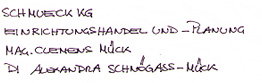 SCHMUECK KG
EINRICHTUNGSHANDEL UND -PLANUNG
MAG. CLEMENS MÜCK
DI ALEXANDRA SCHNÖGASS-MÜCK